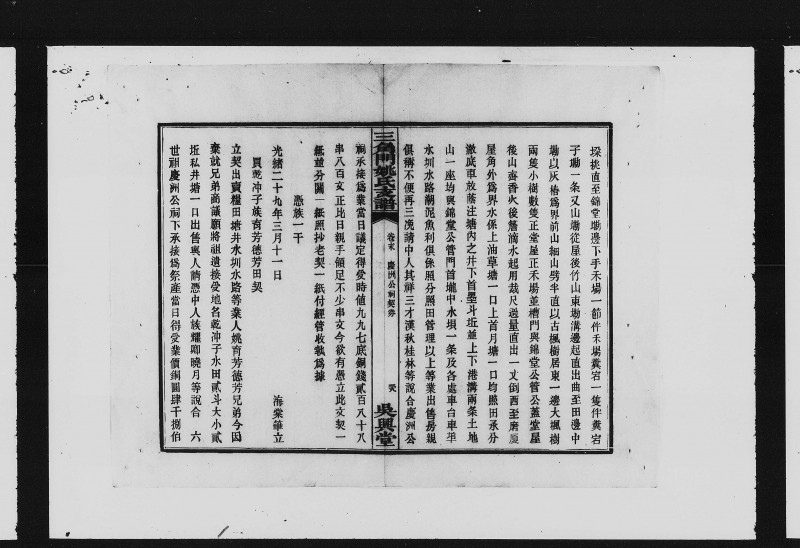 垛挑直至錦堂塝邊下手禾場一節件禾場糞宕一隻伴糞宕
于塝一条又山塝從屋後竹山東塝溝邊起直出曲至田邊中
塝以灰樁爲界前山細山劈半直以古楓樹居東一邊大楓樹
兩隻小樹數隻正堂屋正禾場並槽門與錦堂公管公蓋堂屋
後山斋香火後簷滴水起用裁尺過量直出一丈倒西至磨廈
屋角外爲界水係上油草塘一口上首月塘一口均照田承分
澈底車放蔭注塘內之井下首墨斗坵並上下港溝兩条土地
山一座均與錦堂公管門首壠中水垻一条及各處車台車垏
水圳水路潮泥魚利俱係照分照田管理以上等業出售房親
俱稱不便再三凂請中人其祥三才漢秋桂林等說合慶洲公
三角門姚氏支譜
卷末 慶洲公祠契券
吳興堂
祠承接爲業當日議定得受時値九九七底銅錢貳百八十八
串八百文正比日親手領足不少串文今欲有憑立此文契一
紙並分關一紙照抄老契一紙付經管收執爲據
憑族一干
光緒二十九年三月十一日 海棠筆立
買乾冲子族育芳德芳田契
立契出賣糧田塘井水圳水路等業人姚育芳德芳兄弟今因
棄就兄弟商議願將祖遺接受地名乾冲子水田貳斗大小貳
坵私井塘一口出售與人請憑中人族耀卿曉月等說合 六
世祖慶洲公祠下承接爲祭產當日得受業價銅圓肆千捌伯